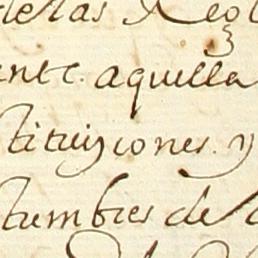 delas Regl
ente. aquella
tituiçiones. y
tumbres de l